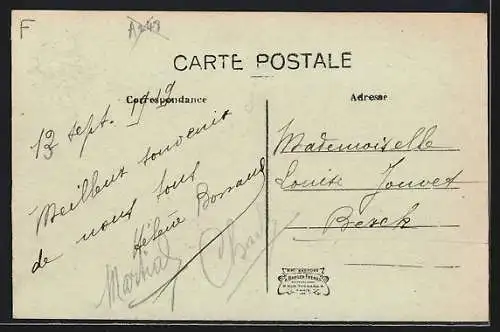 F
CARTE POSTALE
Correspondance
Adresse
13 Sept. 1919
Meilleur souvenir
de nous tous
Hélène
Martial
Mademoiselle
Louise Jouvet
Berck